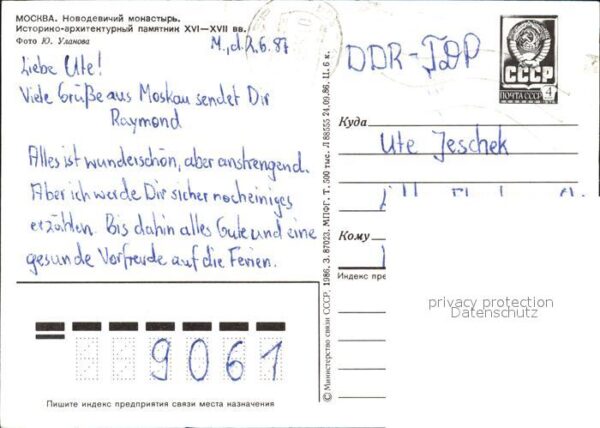 МОСКВА. Новодевичий монастырь.
Историко-архитектурный памятник XVI—XVII вв.
Фото Ю. Уланова
M., d. 2.6.87
Liebe Ute!
Viele Grüße aus Moskau sendet Dir
Raymond
Alles ist wunderschön, aber anstrengend.
Aber ich werde Dir sicher noch einiges
erzählen. Bis dahin alles Gute und eine
gesunde Vorfreude auf die Ferien.
9061
Пишите индекс предприятия связи места назначения
© Министерство связи СССР. 1986. З. 87023. МПФГ. Т. 500 тыс. Л 88555 24.09.86. Ц. 6 к.
DDR - ГДР
СССР
ПОЧТА СССР 4
Куда
Ute Jeschek
Кому
Индекс пре
privacy protection
Datenschutz